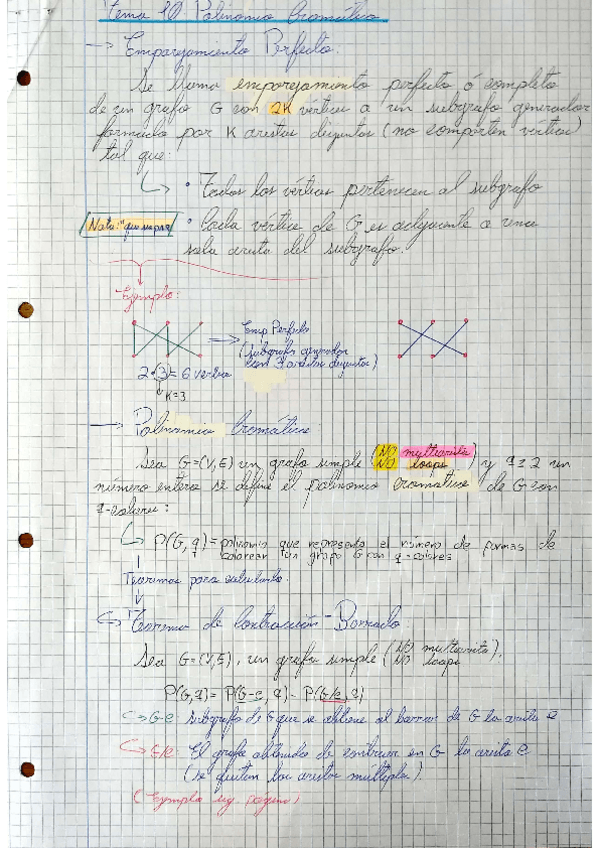 Tema 10 Polinomio Cromático
→ Emparejamiento Perfecto:
Se llama emparejamiento perfecto ó completo
de un grafo G con 2K vértices a un subgrafo generador
formado por K aristas disjuntas (no comparten vértices)
tal que:
↳ • Todos los vértices pertenecen al subgrafo
Nota: "que va por • Cada vértice de G es adyacente a una
sola arista del subgrafo.
Ejemplo:
→ Emp Perfecto
(subgrafo generador
con 3 aristas disjuntas)
2·3 = 6
K=3
→ Polinomio Cromático
Sea G=(V,E) un grafo simple (NO multiarista
NO loops) y q≥2 un
número entero se define el polinomio cromático de G con
q-colores:
↳ P(G,q) = polinomio que representa el número de formas de
colorear un grapo G con q-colores
Teoremas para calcularlo:
↳ Teorema de Contracción-Borrado:
Sea G=(V,E), un grafo simple (NO multiarista
NO loops),
P(G,q) = P(G-e,q) - P(G/e,q)
↳ G-e: Subgrafo de G que se obtiene al borrar de G la arista e
↳ G/e: El grafo obtenido de contraer en G la arista e
(se quitan las aristas múltiples).
(Ejemplo sig. pagina)